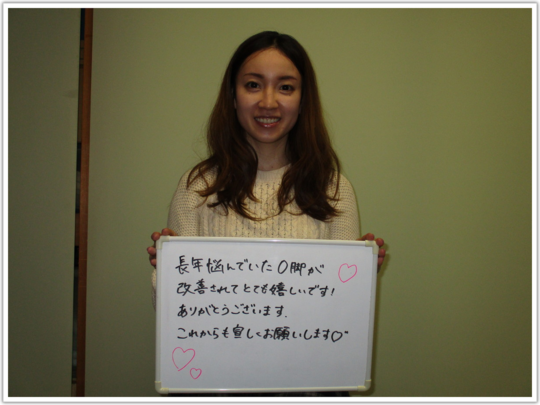 長年悩んでいたO脚が
改善されてとても嬉しいです!
ありがとうございます.
これからも宜しくお願いします♡